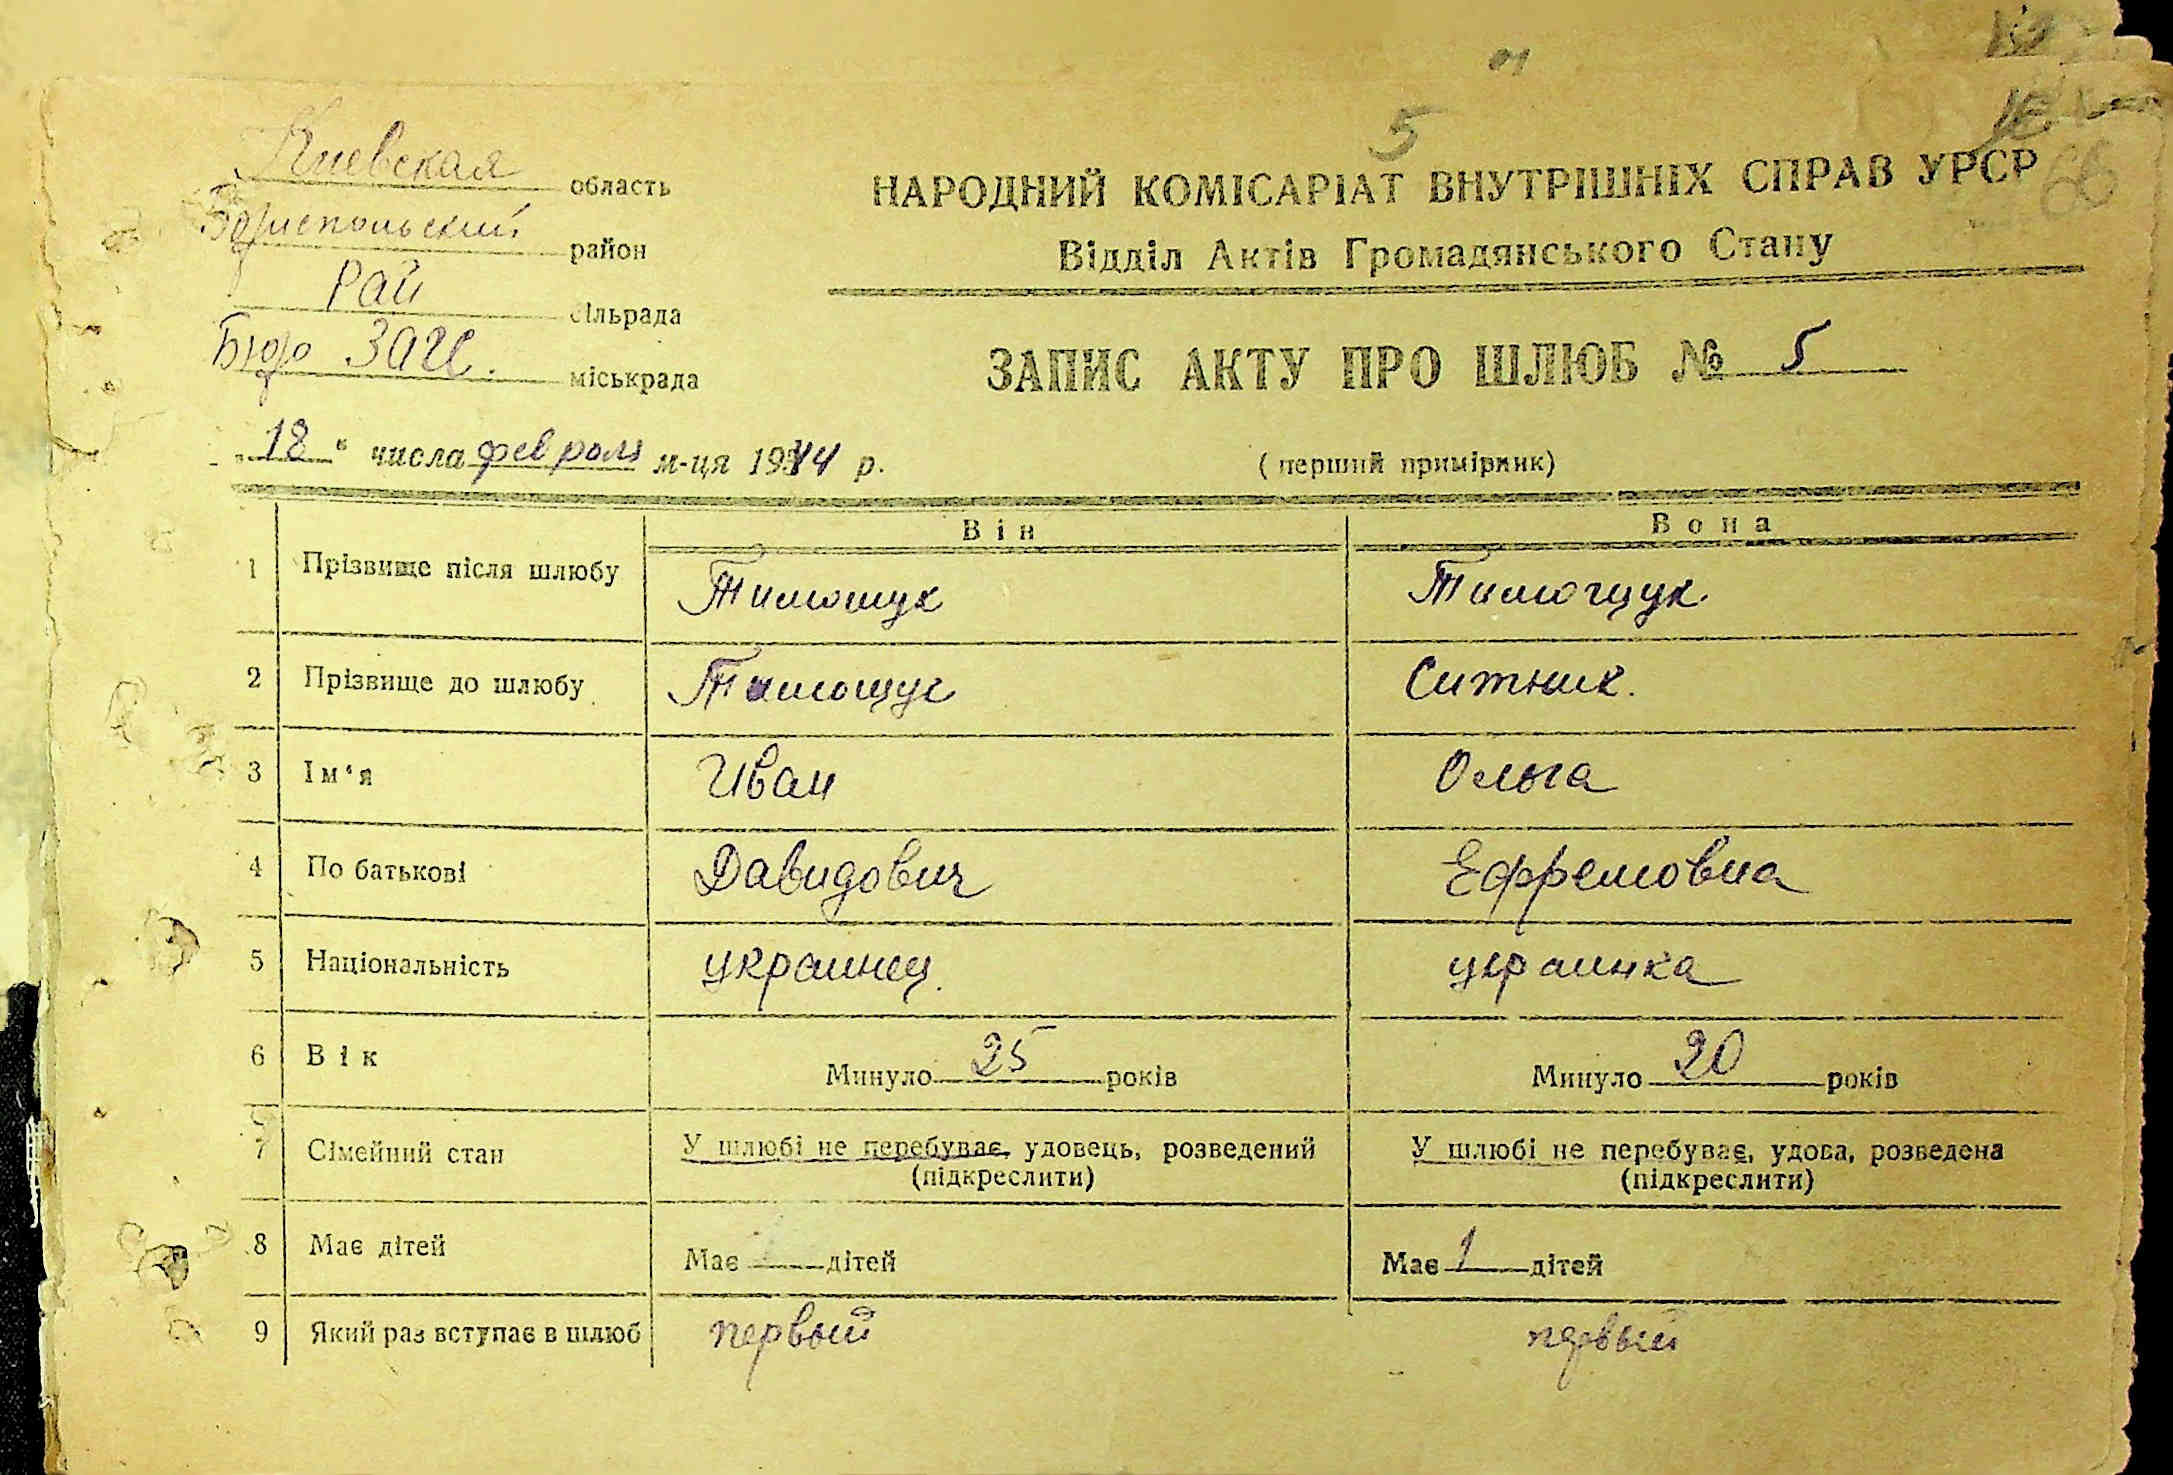 5
66
Киевская область
НАРОДНИЙ КОМІСАРІАТ ВНУТРІШНІХ СПРАВ УРСР
Бориспольский район
Відділ Актів Громадянського Стану
Рай сільрада
Бюро ЗАГС. міськрада
ЗАПИС АКТУ ПРО ШЛЮБ № 5
„18“ числа февраля м-ця 1944 р.
(перший примірник)
Він Вона
1 Прізвище після шлюбу Тимощук Тимощук
2 Прізвище до шлюбу Тимощук Ситник.
3 Ім'я Иван Ольга
4 По батькові Давидович Ефремовна
5 Національність украинец. украинка
6 Вік Минуло 25 років Минуло 20 років
7 Сімейний стан У шлюбі не перебуває, удовець, розведений У шлюбі не перебуває, удова, розведена
(підкреслити) (підкреслити)
8 Має дітей Має дітей Має 1 дітей
9 Який раз вступає в шлюб первый первый